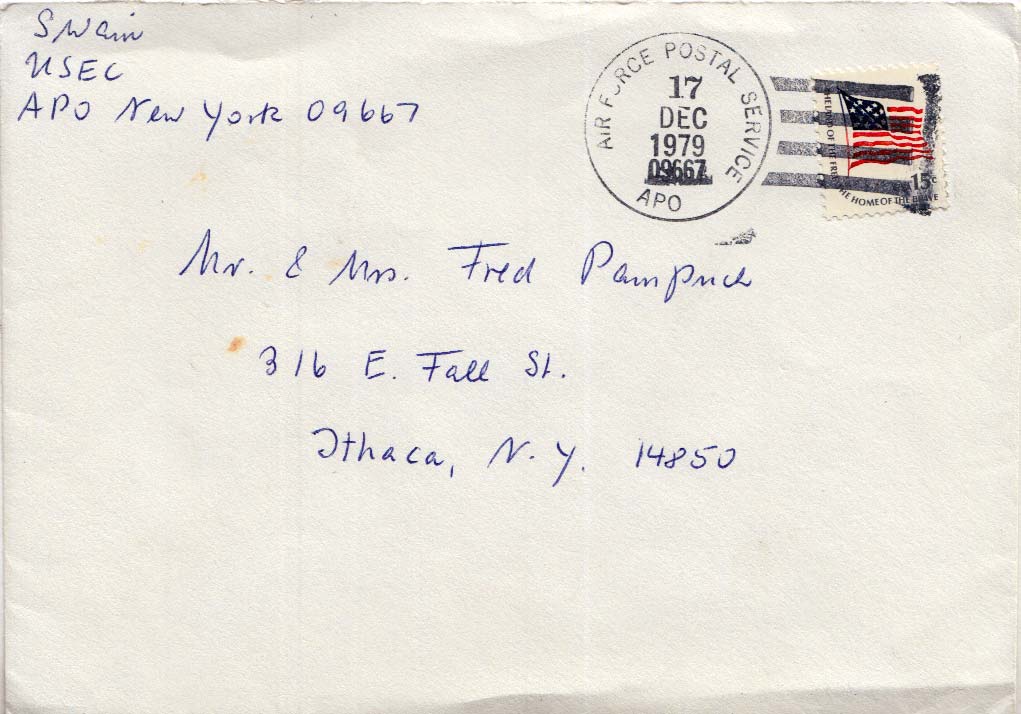 Swain
USEC
APO New York 09667
AIR FORCE POSTAL SERVICE
17
DEC
1979
09667
APO
15c
THE HOME OF THE BRAVE
Mr. & Mrs. Fred Pampuch
316 E. Fall St.
Ithaca, N.Y. 14850